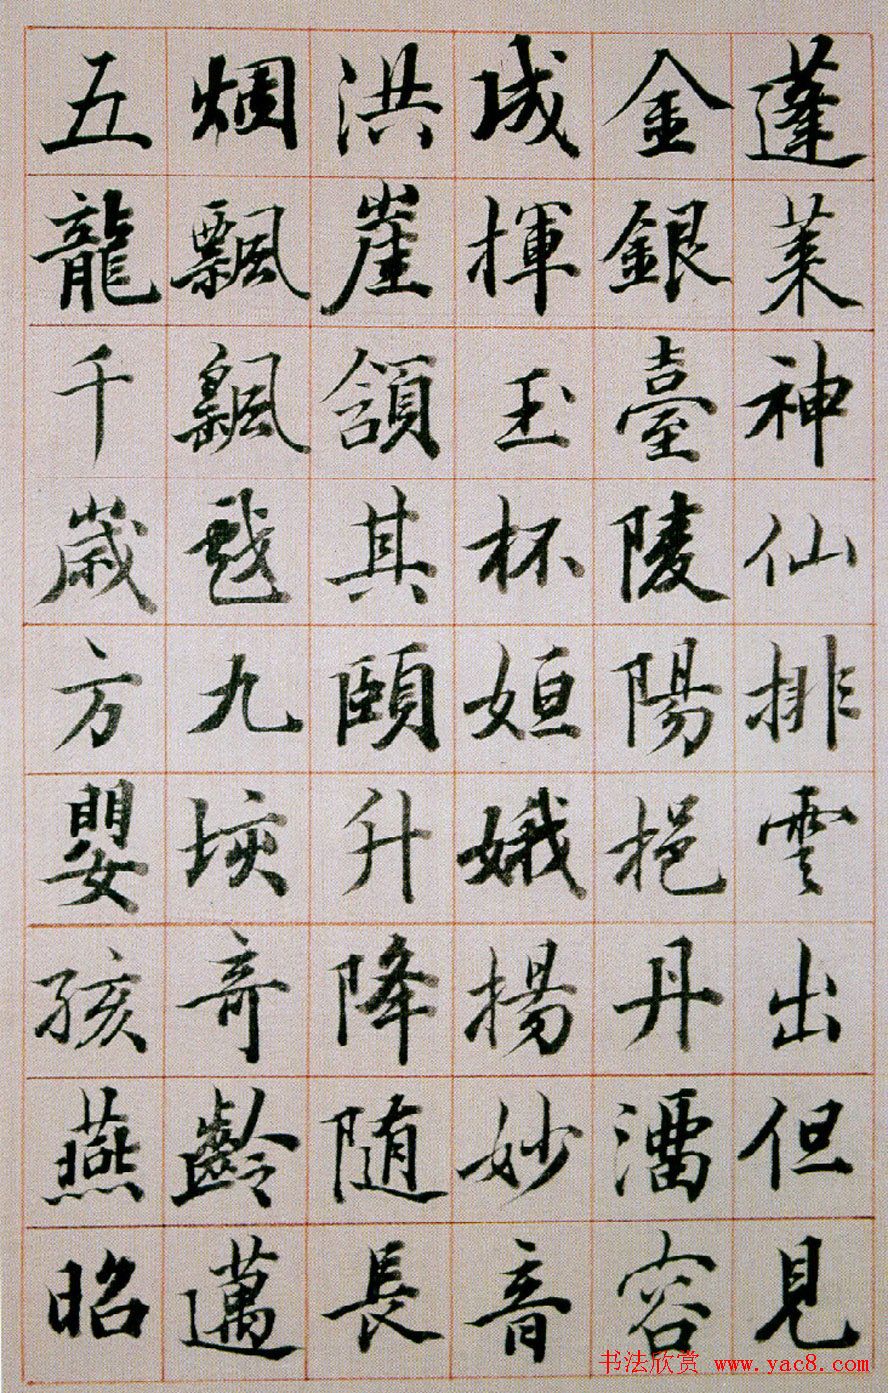 蓬莱神仙排雲出但見
金銀臺陵陽挹丹溜容
成揮玉杯姮娥揚妙音
洪崖頷其頤升降随長
烟飄飖戲九垓奇齡邁
五龍千歲方嬰孩燕昭
书法欣赏 www.yac8.com